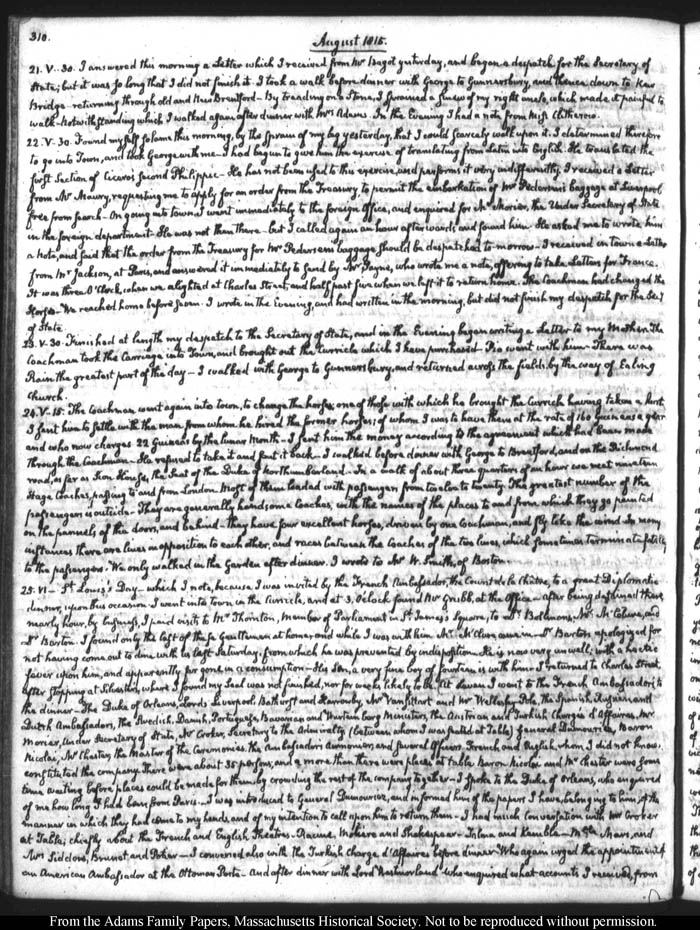 310.
August 1815.
21. V.30. I answered this morning a Letter which I received from Mr Bagot yesterday, and began a despatch for the Secretary of
State; but it was so long that I did not finish it. I took a walk before dinner with George to Gunnersbury, and thence down to Kew
Bridge - returning through old and New Brentford - By treading on a Stone, I sprained a sinew of my right ancle, which made it painful to
walk - Notwithstanding which I walked again after dinner with Mrs Adams. In the Evening I had a note from Miss Clitherow.
22. V.30. Found myself so lame this morning, by the sprain of my leg yesterday, that I could scarcely walk upon it. I determined therefore
to go into Town, and took George with me - I had begun to give him the exercise of translating from Latin into English. He translated the
first Section of Cicero's second Philippic - He has not been used to this exercise, and performs it very indifferently. I received a Letter
from Mr Maury, requesting me to apply for an order from the Treasury, to permit the embarkation of Mr Pedersen's baggage at Liverpool
free from search - On going into town I went immediately to the foreign Office, and enquired for Mr Morier, the Under Secretary of State
in the foreign department - He was not then there - but I called again an hour afterwards and found him. He asked me to write him
a Note, and said that the order from the Treasury for Mr Pedersen's baggage should be despatched to-morrow - I received in town a Letter
from Mr Jackson, at Paris, and answered it immediately to send by Mr Payne, who wrote me a note, offering to take Letters for France.
It was three O'Clock, when we alighted at Charles Street, and half past five when we left it to return home. The Coachman had changed the
Horses - We reached home before seven. I wrote in the Evening, and had written in the morning, but did not finish my despatch for the Secy
of State.
23. V.30. Finished at length my despatch to the Secretary of State, and in the Evening began writing a Letter to my Mother. The
Coachman took the Carriage into Town, and brought out the Curricle which I have purchased - went with him - There was
Rain the greatest part of the day - I walked with George to Gunnersbury, and returned across the fields, by the way of Ealing
Church.
24. V.15. The Coachman went again into town, to change the horses; one of those with which he brought the Curricle having taken a hurt
I sent him to settle with the man from whom he hired the former horses; of whom I was to have them at the rate of 160 Guineas a year
and who now charges 22 Guineas by the lunar Month - I sent him the money according to the agreement which had been made
through the Coachman - He refused to take it and sent it back - I walked before dinner with George to Brentford, and on the Richmond
road, as far as Sion House, the Seat of the Duke of Northumberland. In a walk of about three quarters of an hour we met nineteen
Stage Coaches, passing to and from London. Most of them loaded with passengers from twelve to twenty. The greatest number of the
passengers is outside - They are generally handsome Coaches, with the names of the places to and from which they go painted
on the pannels of the doors, and behind - they have four excellent horses, driven by one Coachman, and fly like the wind. In many
instances there are lines in opposition to each other, and races between the Coaches of the two lines, which sometimes terminate fatally
to the passengers. We only walked in the Garden after dinner. I wrote to Mr W. Smith, of Boston.
25. VI - St Louis's Day - which I note, because I was invited by the French Ambassador, the Count de la Châtre, to a great Diplomatic
dinner, upon this occasion. I went into town in the Curricle, and at 3, O'clock found Mr Grubb, at the Office - after being detained there
nearly hour, by business, I paid visits to Mr Thornton, Member of Parliament in St James's Square, to Dr Bollmann, Mr McClure, and
Dr Barton. I found only the last of the Gentlemen at home, and while I was with him Mr McClure came in. Dr Barton apologized for
not having come out to dine with us last Saturday, from which he was prevented by indisposition. He is now very unwell, with a hectic
fever upon him, and apparently far gone in a consumption - His son, a very fine boy of fourteen is with him. I returned to Charles Street,
after stopping at Silvester's, where I found my Seal was not finished, nor for weeks likely to be. At seven I went to the French Ambassador's to
the dinner. The Duke of Orleans, Lords Liverpool, Bathurst and Harrowby, Mr Vansittart and Mr Wellesley Pole, the Spanish, Russian and
Dutch Ambassadors, the Swedish, Danish, Portuguese, Bavarian and Wurtemberg Ministers, the Austrian and Turkish Chargés d'Affaires, Mr
Morier, Under Secretary of State, Mr Croker, Secretary to the Admiralty (between whom I was seated at Table) General Dumouriez, Baron
Nicolai, Mr Chester, the Master of the Ceremonies, the Ambassadors' and several Officers French and English, whom I did not know,
constituted the company. There were about 35 persons, and 2 more than there were places at table. Baron Nicolai and Mr Chester were some
time waiting before places could be made for them, by crowding the rest of the company together - I spoke to the Duke of Orleans, who enquired
of me how long I had been from Paris - I was introduced to General Dumouriez, and informed him of the papers I have, belonging to him; of the
manner in which they had come to my hands, and of my intention to call upon him to return them - I had much Conversation with Mr Croker
at Table; chiefly about the French and English Theatres - Racine, Moliere and Shakespear - Talma and Kemble - Mlle Mars, and
Mrs Siddons, Brunet and Potier - I conversed also with the Turkish Chargé d'Affaires before dinner - Who again urged the appointment of
an American Ambassador at the Ottoman Porte - And after dinner with Lord Westmorland - who enquired what accounts I received, from
From the Adams Family Papers, Massachusetts Historical Society. Not to be reproduced without permission.